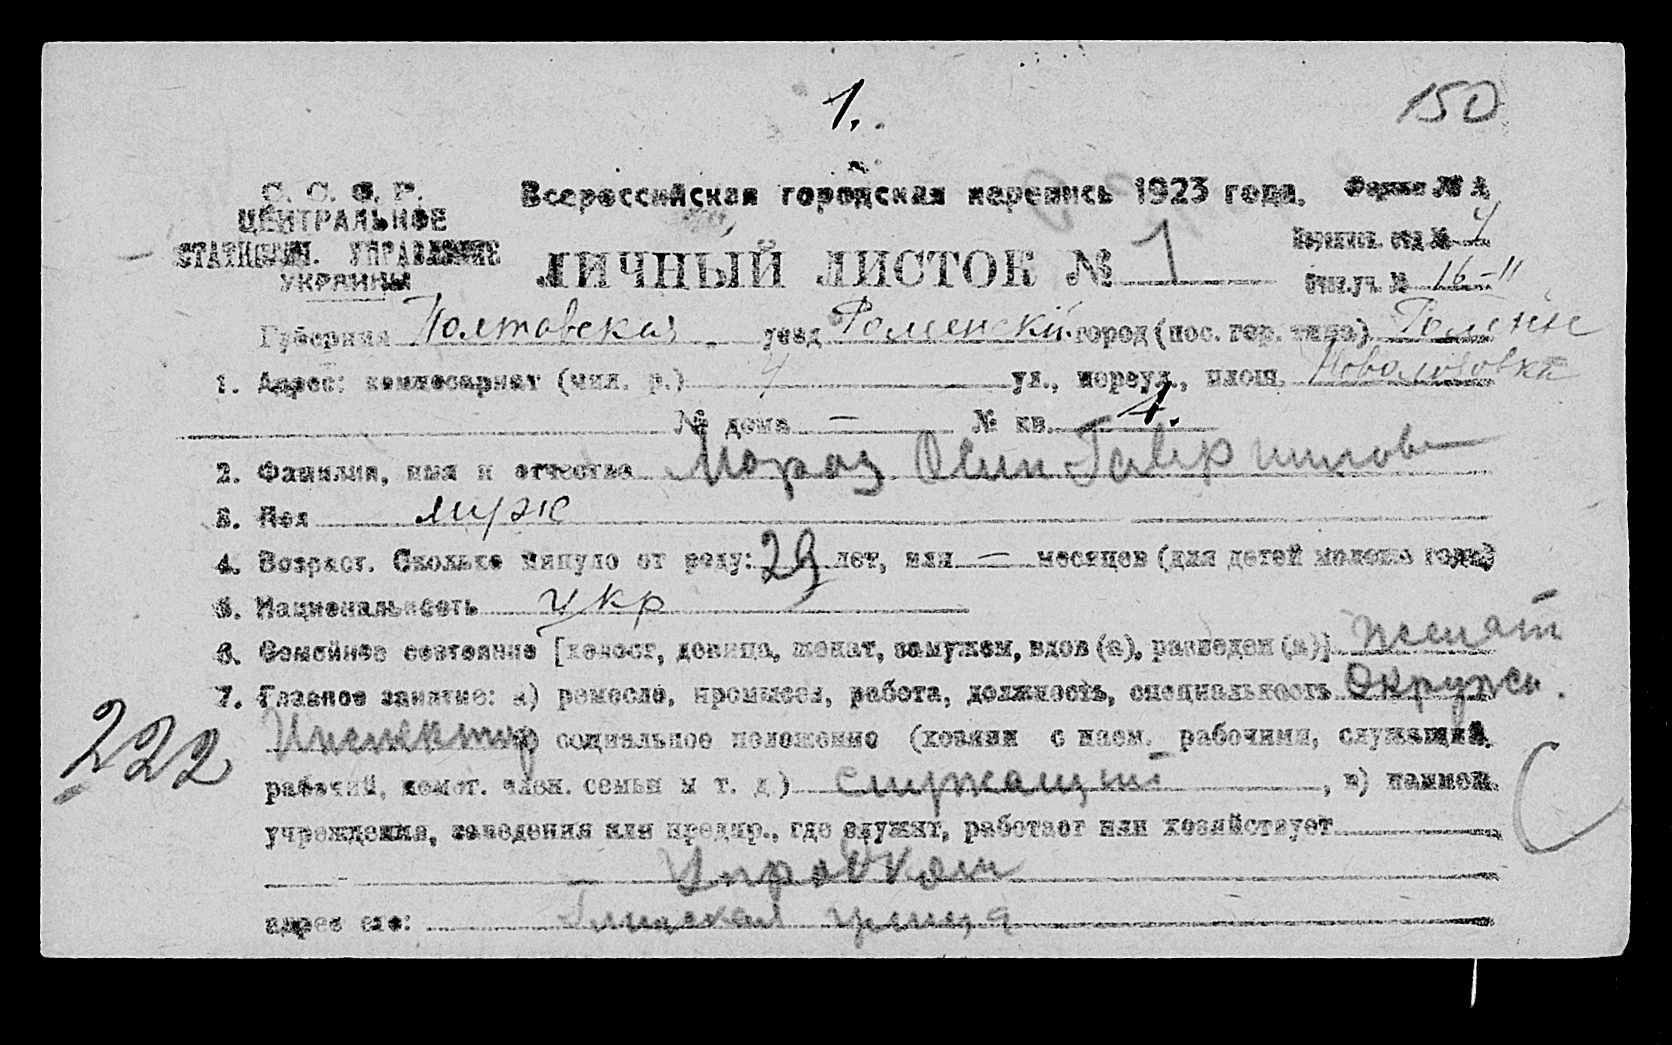 1.
150
С. С. С. Р.
ЦЕНТРАЛЬНОЕ
СТАТИСТИЧ. УПРАВЛЕНИЕ
УКРАИНЫ
Всероссийская городская перепись 1923 года.
Форма № А
ЛИЧНЫЙ ЛИСТОК № 1
отд. № 4
уч. № 16-11
Губерния Полтавская уезд Роменский город (пос. гор. типа) Ромены
1. Адрес: комиссариат (мил. р.) 4 ул., переул., площ.
№ дома — № кв. 4.
2. Фамилия, имя и отчество Мороз Осип Гаврилов
3. Пол муж
4. Возраст. Сколько минуло от роду: 29 лет, или — месяцев (для детей моложе года)
5. Национальность укр
6. Семейное состояние [холост, девица, женат, замужем, вдов (а), разведен (а)] женат
7. Главное занятие: а) ремесло, промысел, работа, должность, специальность Окружн.
Инспектор б) социальное положение (хозяин с наем. рабочими, служащий,
222
рабочий, помог. член. семьи и т. д.) служащий, в) наимен.
учреждения, заведения или предпр., где служит, работает или хозяйствует
адрес его: улица